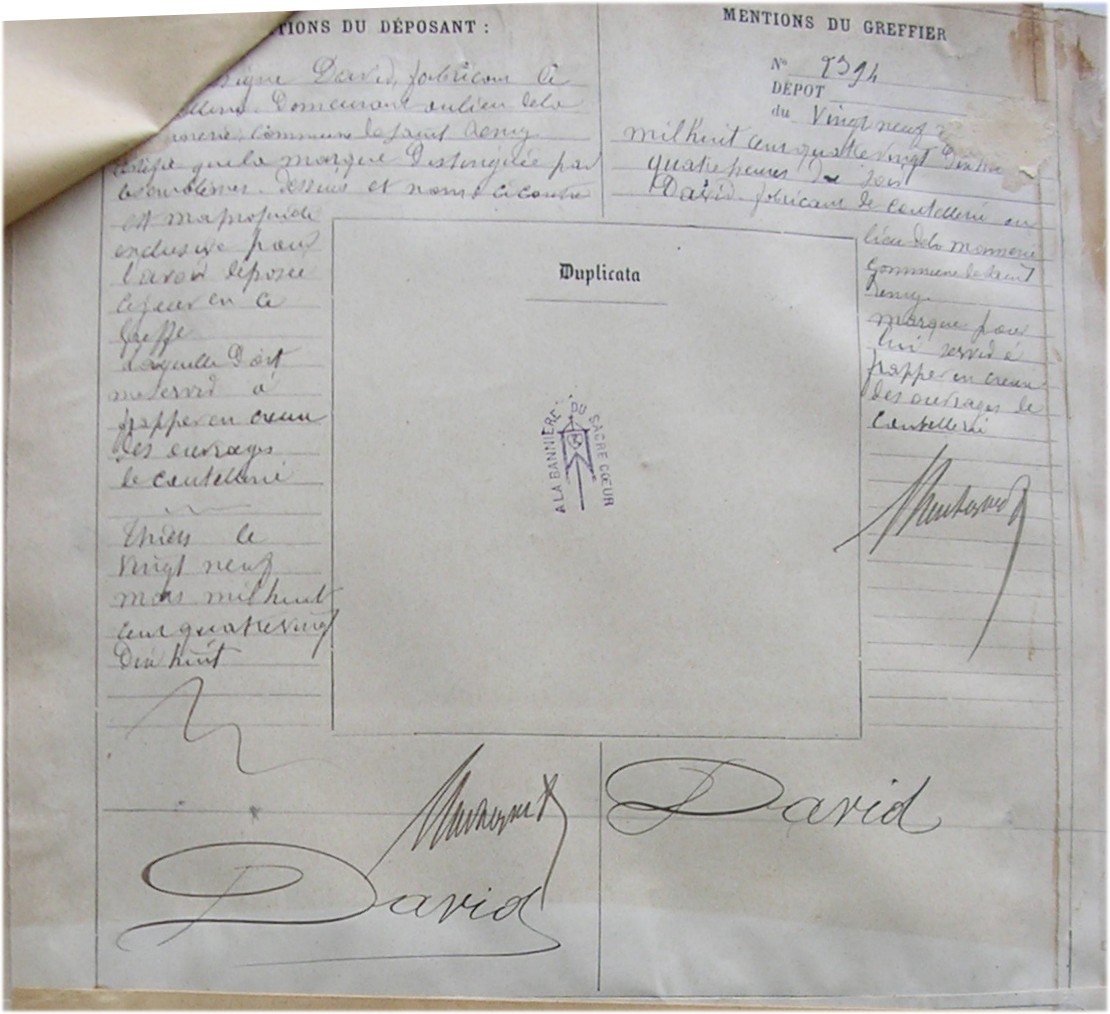 TIONS DU DÉPOSANT :
signe David, fabricant de
Domeurant au lieu de la
commune de saint Remy
certifie que la marque Distinguée par
les emblemes. Dessins et noms ci contre
est ma propriété
exclusive pour
l'avoir déposée
ce jour en ce
Greffe
Laquelle Doit
me servir à
frapper en creux
des ouvrages
de coutellerie
Thiers le
vingt neuf
mars mil huit
cent quatre vingt
Dix huit
David
MENTIONS DU GREFFIER
N°
DÉPOT
du Vingt neuf
mil huit cent quatre vingt Dix huit
quatre heures Du soir
David fabricant de coutellerie au
lieu de la monnerie
Commune de saint
Remy
marque pour
lui servir à
frapper en creux
des ouvrages de
coutellerie
David
Duplicata
A LA BANNIERE DU SACRE CŒUR